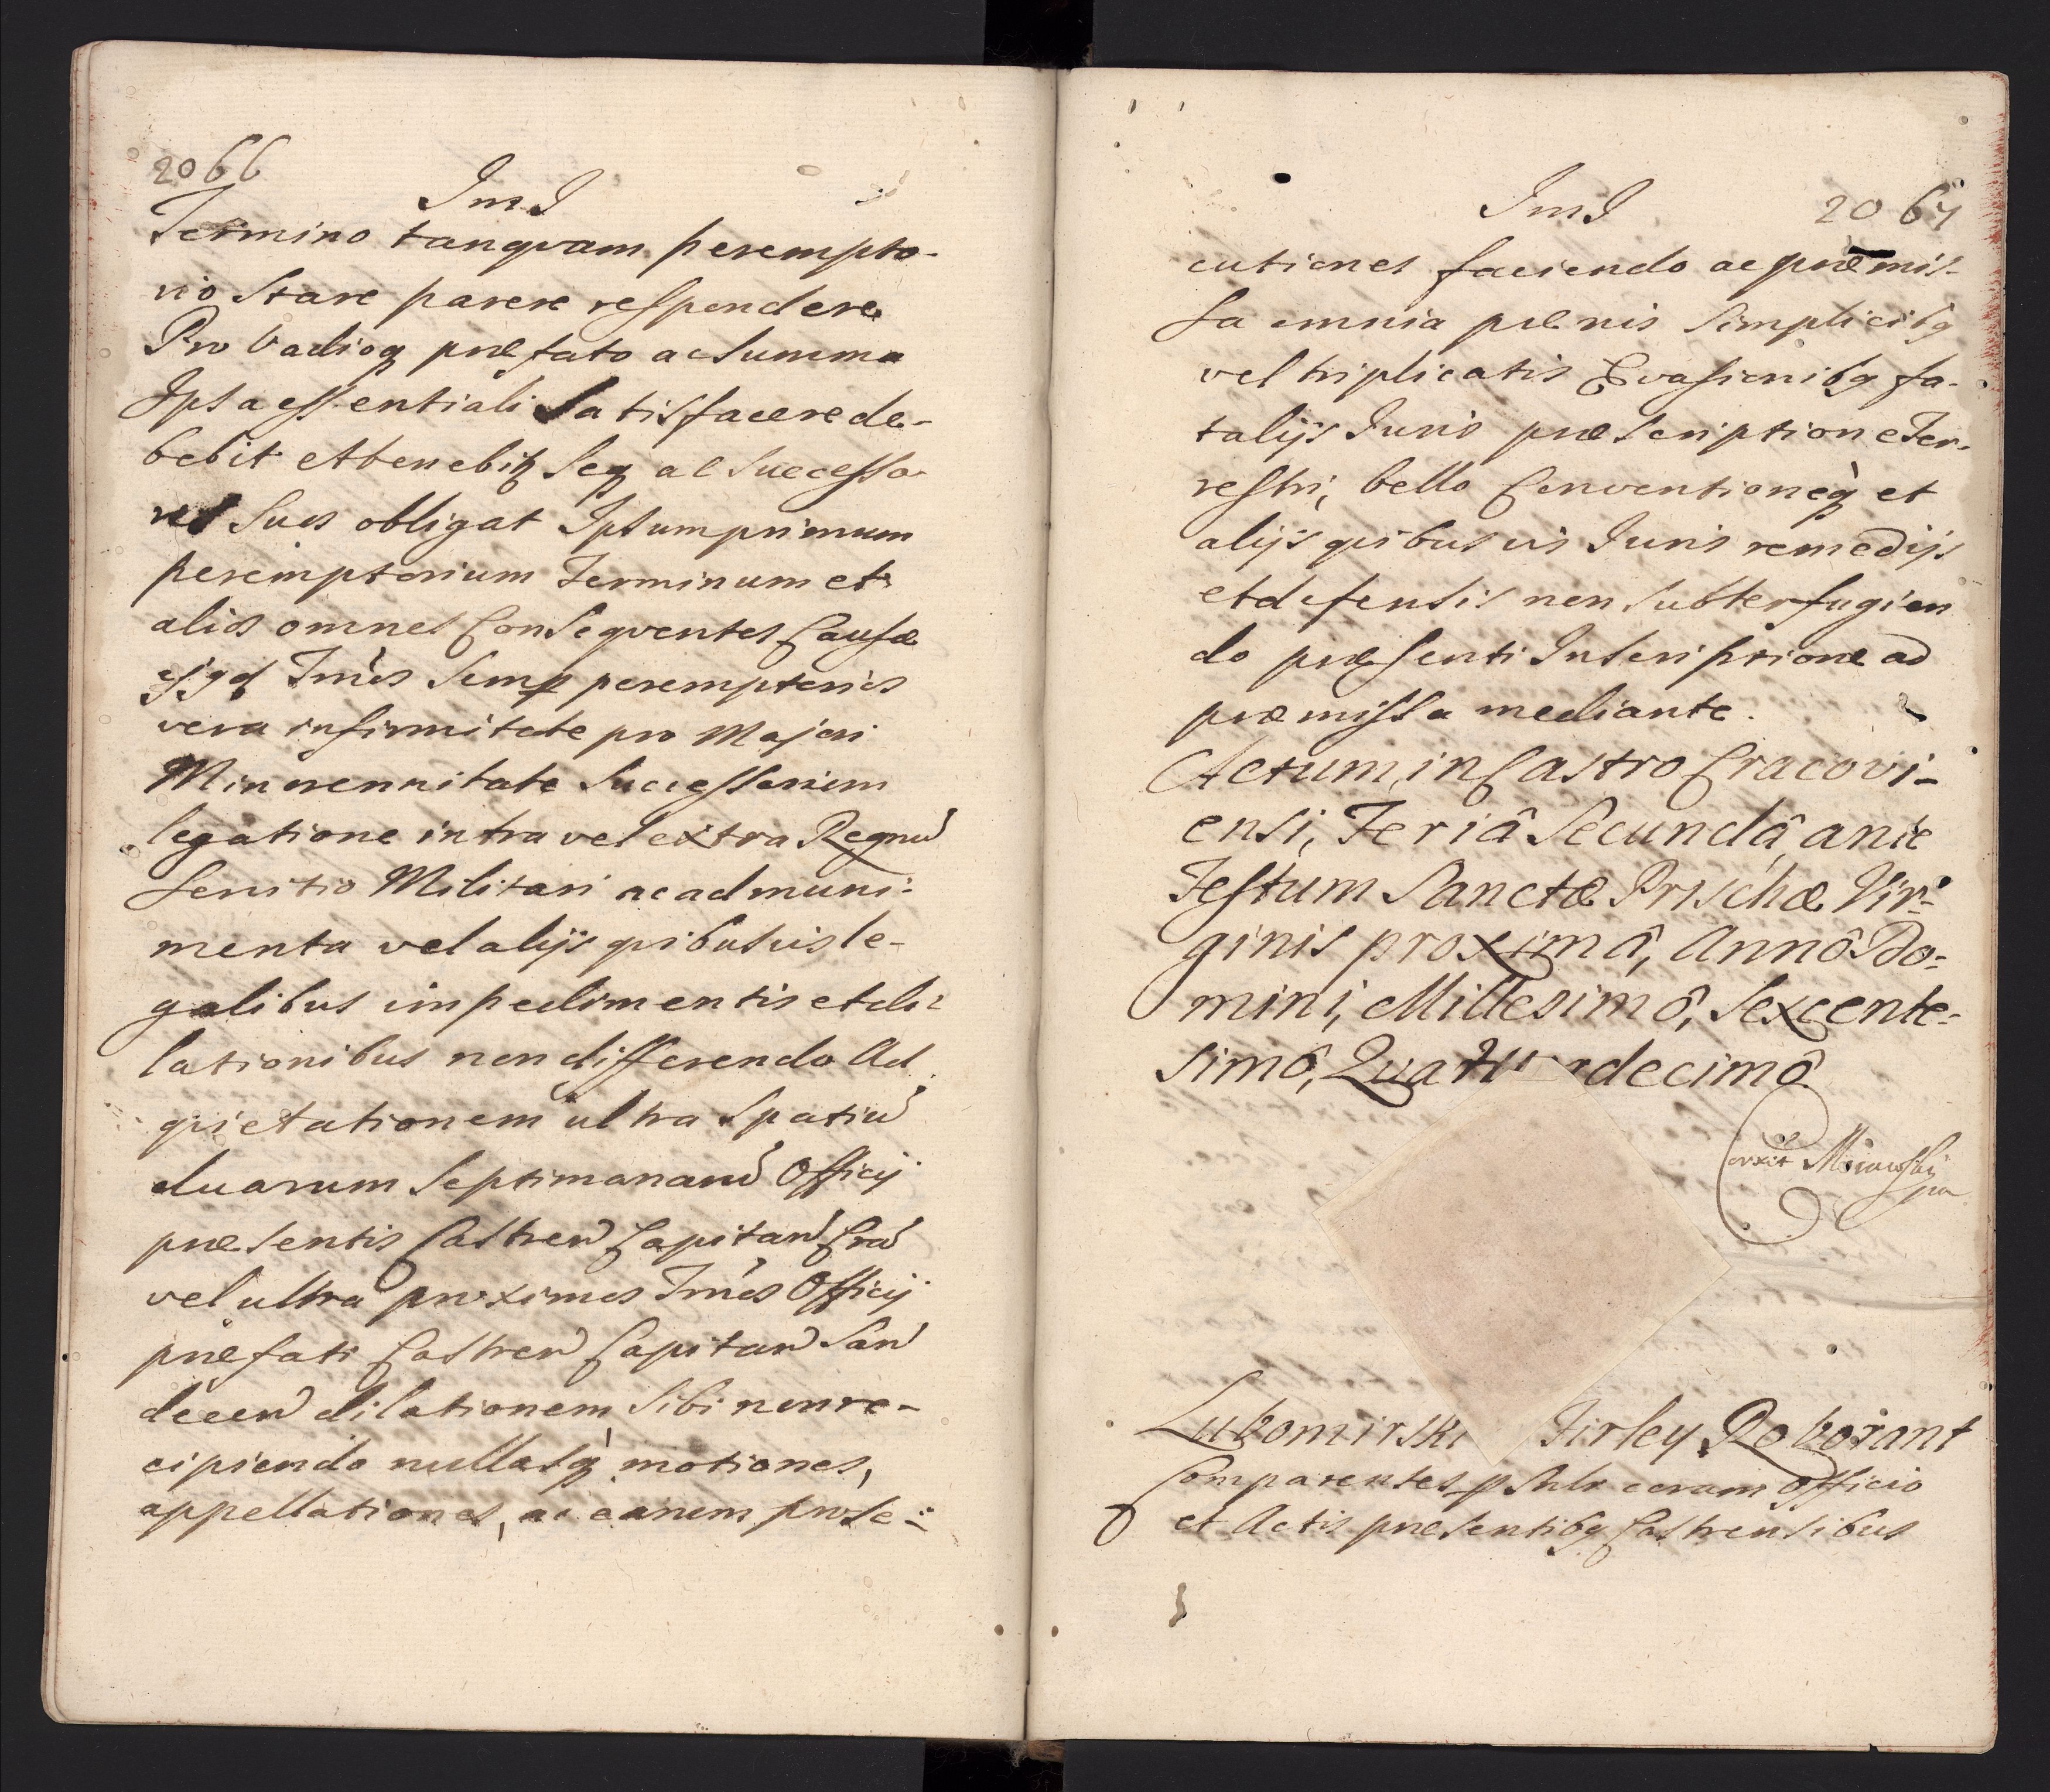 2066
Ims
Termino tanqvam perempto-
rio Stare parere respondere
Pro Vadioq præfato ac Summa
Ipsa essentiali Satisfacere de-
bebit et tenebitq Seq ac Successo-
res Suos obligat Ipsum primum
peremptorium Terminum et
alios omnes Conseqventes Causæ
Tmnos Semp peremptorios
vera infirmitate pro Majori
Minorennitate Successorum
legatione intra vel extra Regnu
Servitio Militari ac ad muni-
menta vel alijs qvibusvis le-
galibus impedimentis et di-
lationibus non differendo Ad
qvietationem ultra Spatiu
duarum Septimanaru Officij
præsentis Castren Capitan Cra
vel ultra proximos Tmnos Officij
præfati Castren Capitan San
decen dilationem Sibi non re-
cipiendo nullasq motiones,
appellationes, ac earum prose-
Ims 2067
cutiones faciendo ac præmis-
sa omnia pænis Simplicibq
vel triplicatis Evasionibq fa-
talijs Juris præscriptione Ter-
restri, bello Conventioneq et
alijs qvibusvis Juris remedijs
et defensis non Subterfugien
do præsenti Inscriptione ad
præmissa mediante.
Actum, in Castro Cracovi-
ensi, Feriâ Secundâ ante
Festum Sanctæ Prischæ Vir-
ginis proximâ, Annô Do-
mini, Millesimô, Sexcente-
simô, Quatuordecimô
Lubomirski Firley Roborant
Comparentes pSnlr coram Officio
et Actis præsentibq Castrensibus